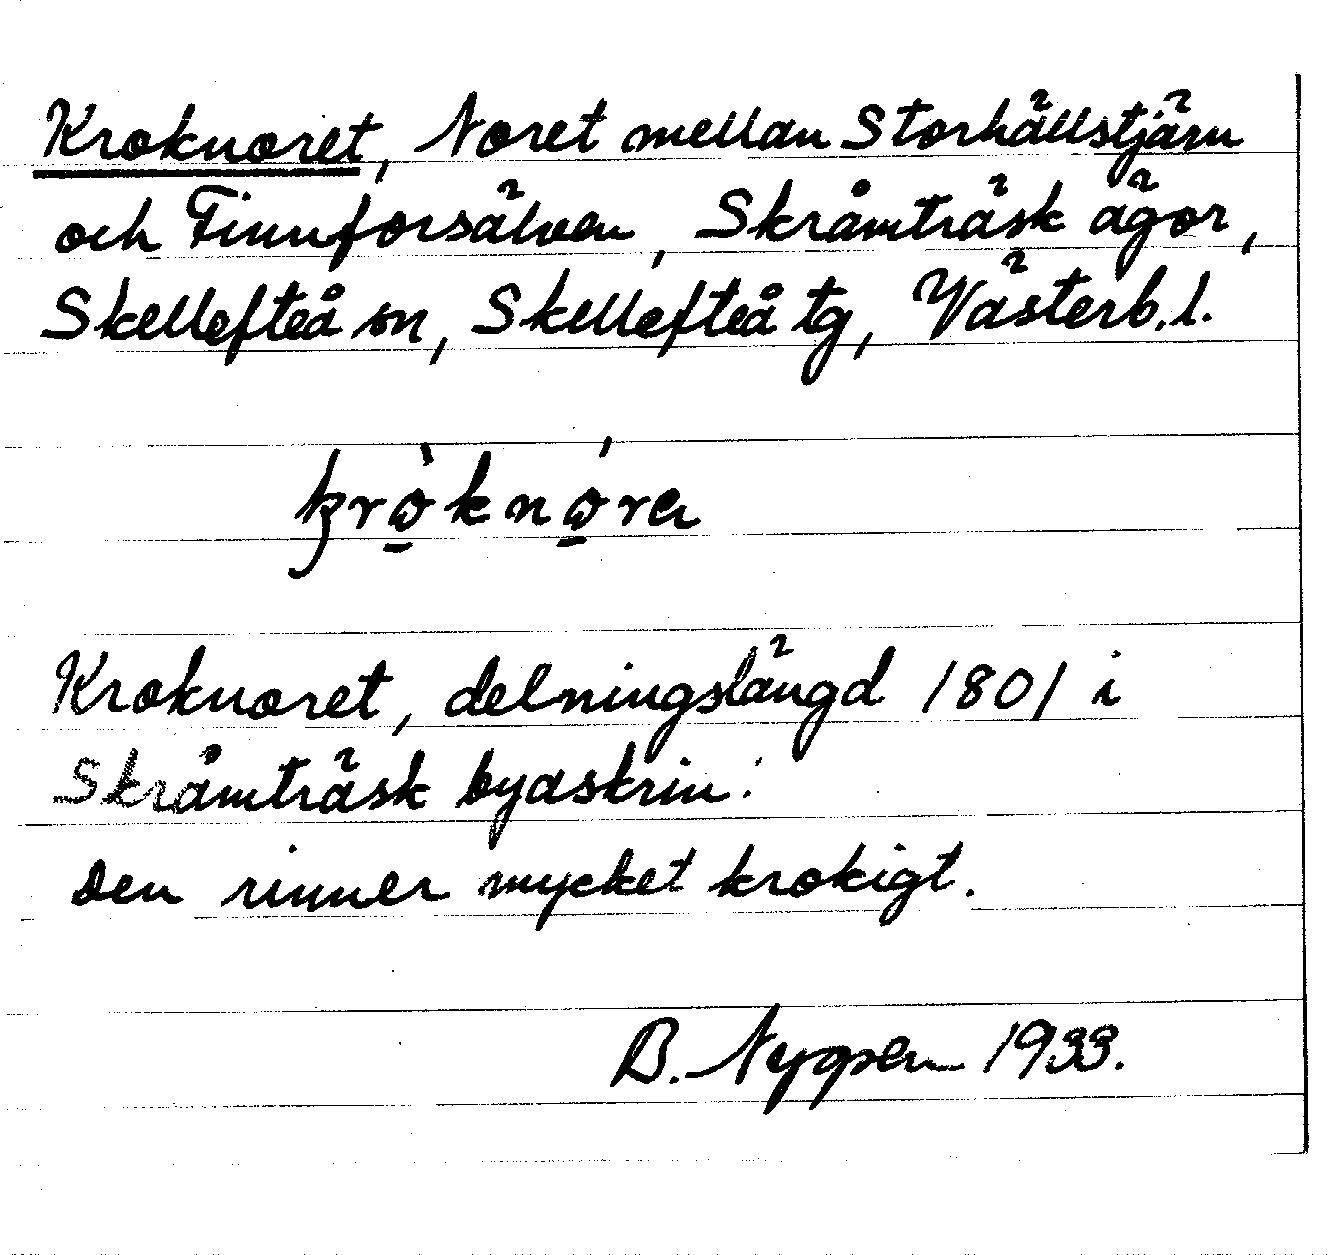 Kroknoret, Noret mellan Storhällstjärn
och Finnforsälven, Skråmträsk ägor,
Skellefteå sn, Skellefteå tg, Västerb. l.
Kroknoret, delningslängd 1801 i
Skråmträsk byaskrin.
Den rinner mycket krokigt.
B. 1933.